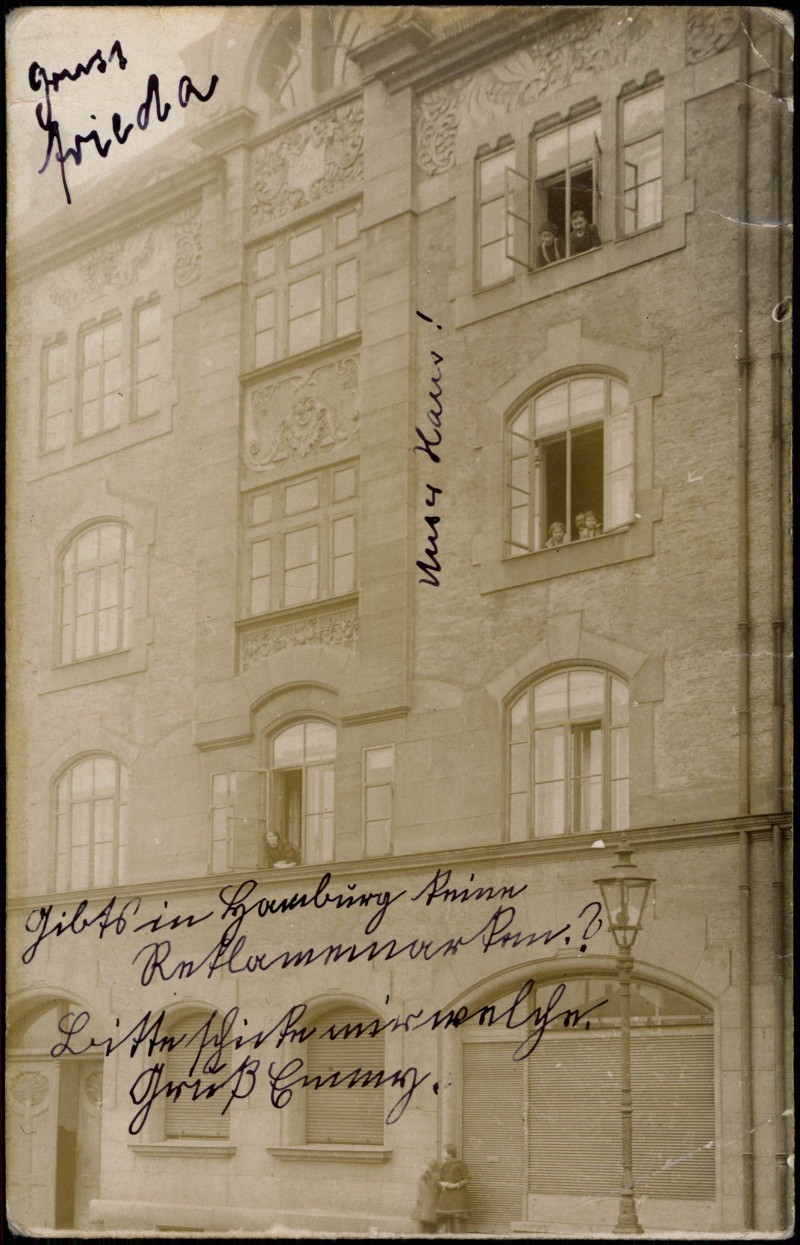 Gruss
Frieda
Unser Haus!
Gibts in Hamburg keine
Reklamemarken.?
Bitte schicke mir welche.
Gruß Emmy.